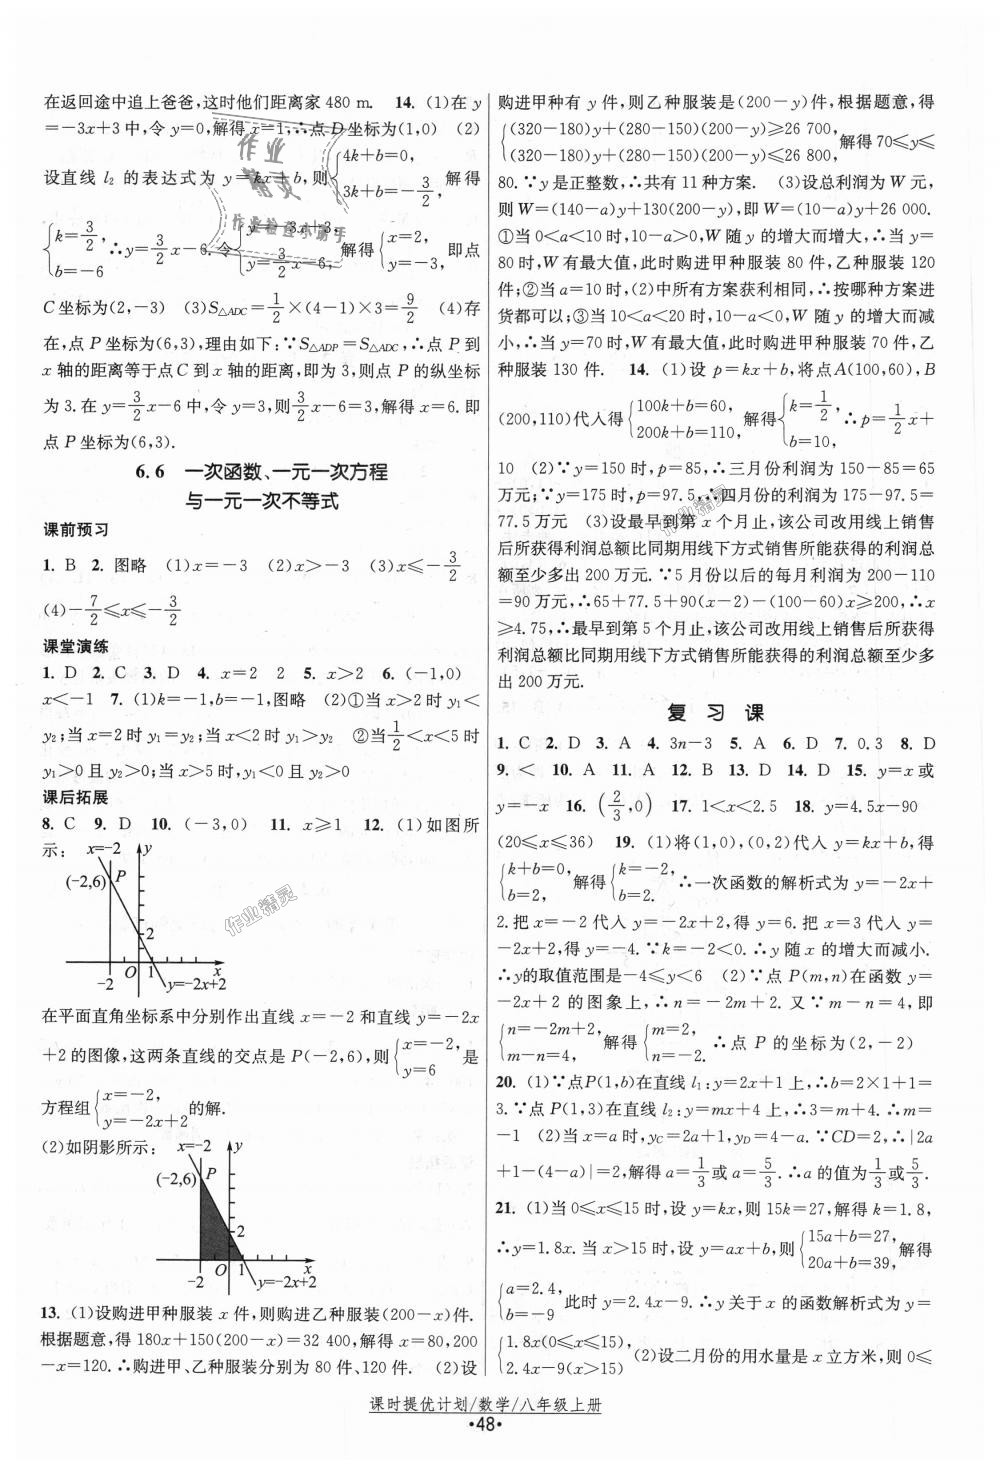 在返回途中追上爸爸,这时他们距离家 480 m. 14. (1)在 y
=-3x+3 中,令 y=0,解得 x=1,∴点 D 坐标为(1,0) (2)
设直线 l₂ 的表达式为 y=kx+b,则{4k+b=0, 3k+b=-3/2, 解得
{k=3/2, b=-6 ∴y=3/2x-6.令{y=-3x+3, y=3/2x-6, 解得{x=2, y=-3, 即点
C 坐标为(2,-3) (3)S△ADC=1/2×(4-1)×3=9/2 (4)存
在,点 P 坐标为(6,3),理由如下:∵S△ADP=S△ADC,∴点 P 到
x 轴的距离等于点 C 到 x 轴的距离,即为 3,则点 P 的纵坐标
为 3.在 y=3/2x-6 中,令 y=3,则3/2x-6=3,解得 x=6.即
点 P 坐标为(6,3).
6.6 一次函数、一元一次方程
与一元一次不等式
课前预习
1. B 2. 图略 (1)x=-3 (2)x>-3 (3)x≤-3/2
(4)-7/2≤x≤-3/2
课堂演练
1. D 2. C 3. D 4. x=2 2 5. x>2 6. (-1,0)
x<-1 7. (1)k=-1,b=-1,图略 (2)①当 x>2 时 y₁<
y₂;当 x=2 时 y₁=y₂;当 x<2 时 y₁>y₂ ②当1/2<x<5 时
y₁>0 且 y₂>0;当 x>5 时,y₁<0 且 y₂>0
课后拓展
8. C 9. D 10. (-3,0) 11. x≥1 12. (1)如图所
示:
x=-2 y
(-2,6) P
2
-2 O 1 x
y=-2x+2
在平面直角坐标系中分别作出直线 x=-2 和直线 y=-2x
+2 的图像,这两条直线的交点是 P(-2,6),则{x=-2, y=6 是
方程组{x=-2, y=-2x+2 的解.
(2)如阴影所示:
x=-2 y
(-2,6) P
2
-2 O 1 x
y=-2x+2
13. (1)设购进甲种服装 x 件,则购进乙种服装(200-x)件.
根据题意,得 180x+150(200-x)=32 400,解得 x=80,200
-x=120.∴购进甲、乙种服装分别为 80 件、120 件. (2)设
购进甲种有 y 件,则乙种服装是(200-y)件,根据题意,得
{(320-180)y+(280-150)(200-y)≥26 700, (320-180)y+(280-150)(200-y)≤26 800, 解得 70≤y≤
80.∵y 是正整数,∴共有 11 种方案. (3)设总利润为 W 元,
则 W=(140-a)y+130(200-y),即 W=(10-a)y+26 000.
①当 0<a<10 时,10-a>0,W 随 y 的增大而增大,∴当 y=
80 时,W 有最大值,此时购进甲种服装 80 件,乙种服装 120
件;②当 a=10 时,(2)中所有方案获利相同,∴按哪种方案进
货都可以;③当 10<a<20 时,10-a<0,W 随 y 的增大而减
小,∴当 y=70 时,W 有最大值,此时购进甲种服装 70 件,乙
种服装 130 件. 14. (1)设 p=kx+b,将点A(100,60),B
(200,110)代入得{100k+b=60, 200k+b=110, 解得{k=1/2, b=10, ∴p=1/2x+
10 (2)∵x=150 时,p=85,∴三月份利润为 150-85=65
万元;∵y=175 时,p=97.5,∴四月份的利润为 175-97.5=
77.5 万元 (3)设最早到第 x 个月止,该公司改用线上销售
后所获得利润总额比同期用线下方式销售所能获得的利润总
额至少多出 200 万元.∵5 月份以后的每月利润为 200-110
=90 万元,∴65+77.5+90(x-2)-(100-60)x≥200,∴x
≥4.75,∴最早到第 5 个月止,该公司改用线上销售后所获得
利润总额比同期用线下方式销售所能获得的利润总额至少多
出 200 万元.
复 习 课
1. C 2. D 3. A 4. 3n-3 5. A 6. D 7. 0.3 8. D
9. < 10. A 11. A 12. B 13. D 14. D 15. y=x或
y=-x 16. (2/3,0) 17. 1<x<2.5 18. y=4.5x-90
(20≤x≤36) 19. (1)将(1,0),(0,2)代入 y=kx+b,得
{k+b=0, b=2, 解得{k=-2, b=2. ∴一次函数的解析式为 y=-2x+
2.把 x=-2 代入 y=-2x+2,得 y=6.把 x=3 代入 y=
-2x+2,得 y=-4.∵k=-2<0.∴y 随 x 的增大而减小.
∴y的取值范围是-4≤y<6 (2)∵点 P(m,n)在函数 y=
-2x+2 的图象上,∴n=-2m+2. 又∵m-n=4,即
{n=-2m+2, m-n=4, 解得{m=2, n=-2. ∴点 P 的坐标为(2,-2)
20. (1)∵点P(1,b)在直线 l₁:y=2x+1 上,∴b=2×1+1=
3.∵点 P(1,3)在直线 l₂:y=mx+4 上,∴3=m+4.∴m=
-1 (2)当 x=a 时,yC=2a+1,yD=4-a.∵CD=2,∴|2a
+1-(4-a)|=2,解得 a=1/3或 a=5/3.∴a 的值为1/3或5/3.
21. (1)当 0≤x≤15 时,设 y=kx,则 15k=27,解得 k=1.8,
∴y=1.8x.当 x>15 时,设 y=ax+b,则{15a+b=27, 20a+b=39, 解得
{a=2.4, b=-9 此时 y=2.4x-9.∴y 关于 x 的函数解析式为 y=
{1.8x(0≤x≤15), 2.4x-9(x>15) (2)设二月份的用水量是 x 立方米,则 0≤
课时提优计划/数学/八年级上册
·48·
作业精灵
作业检查小助手
作业精灵
作业精灵